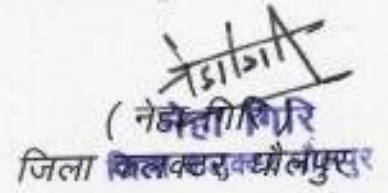 ( नेहा गिरि )
जिला कलक्टर, धौलपुर